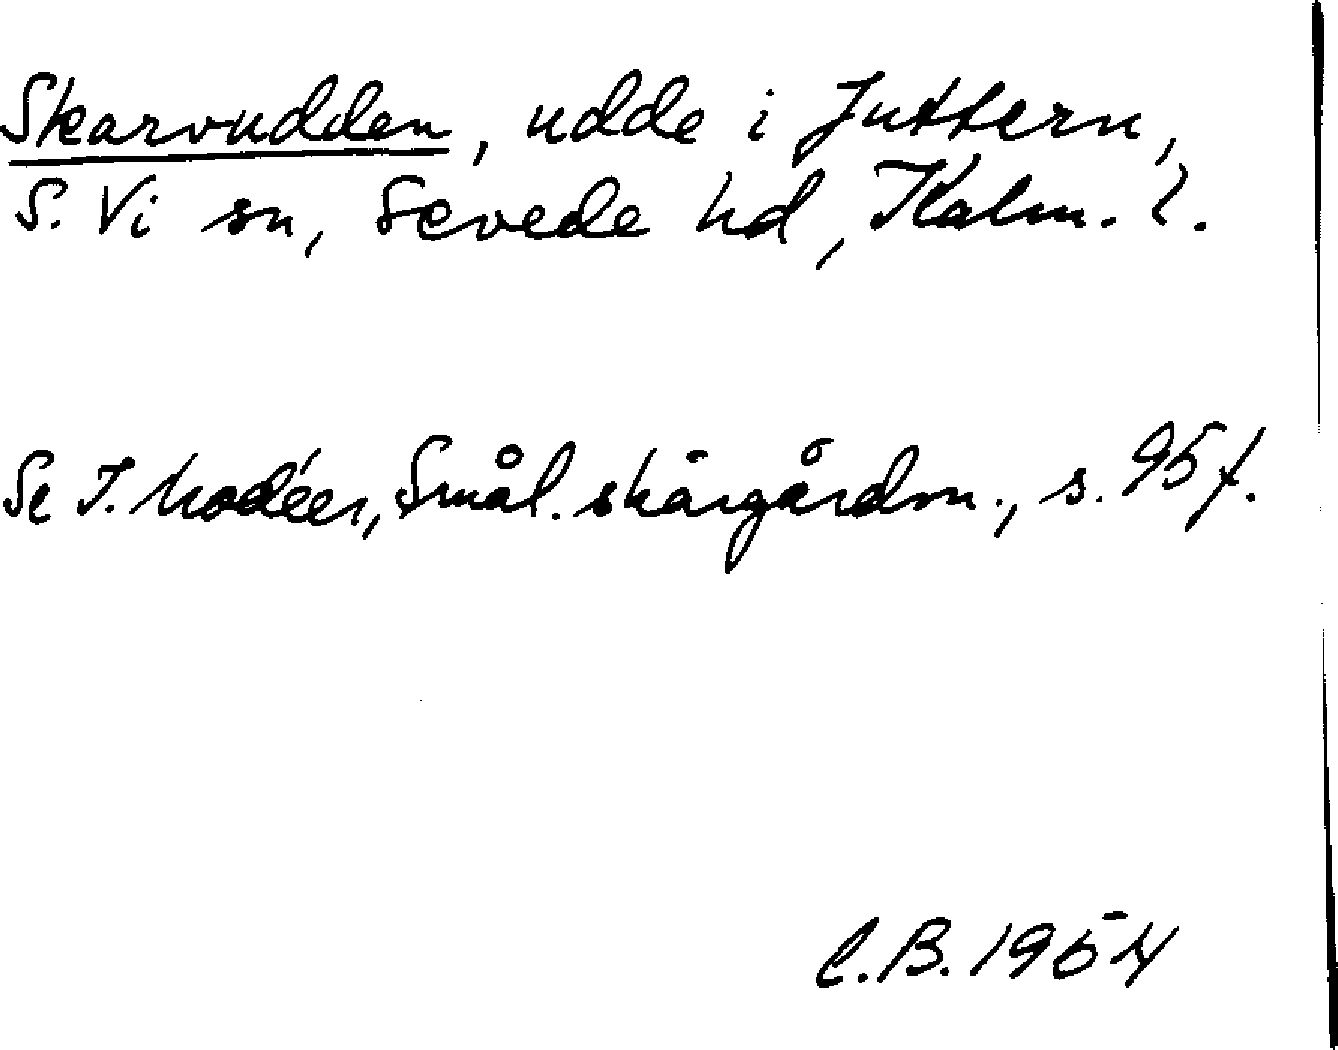 Skarvudden, udde i Juttern,
S. Vi sn, Sevede hd, Kalm. l.
Se I. Modéer, Smål. skärgårdsn., s. 95 f.
C.B. 1954